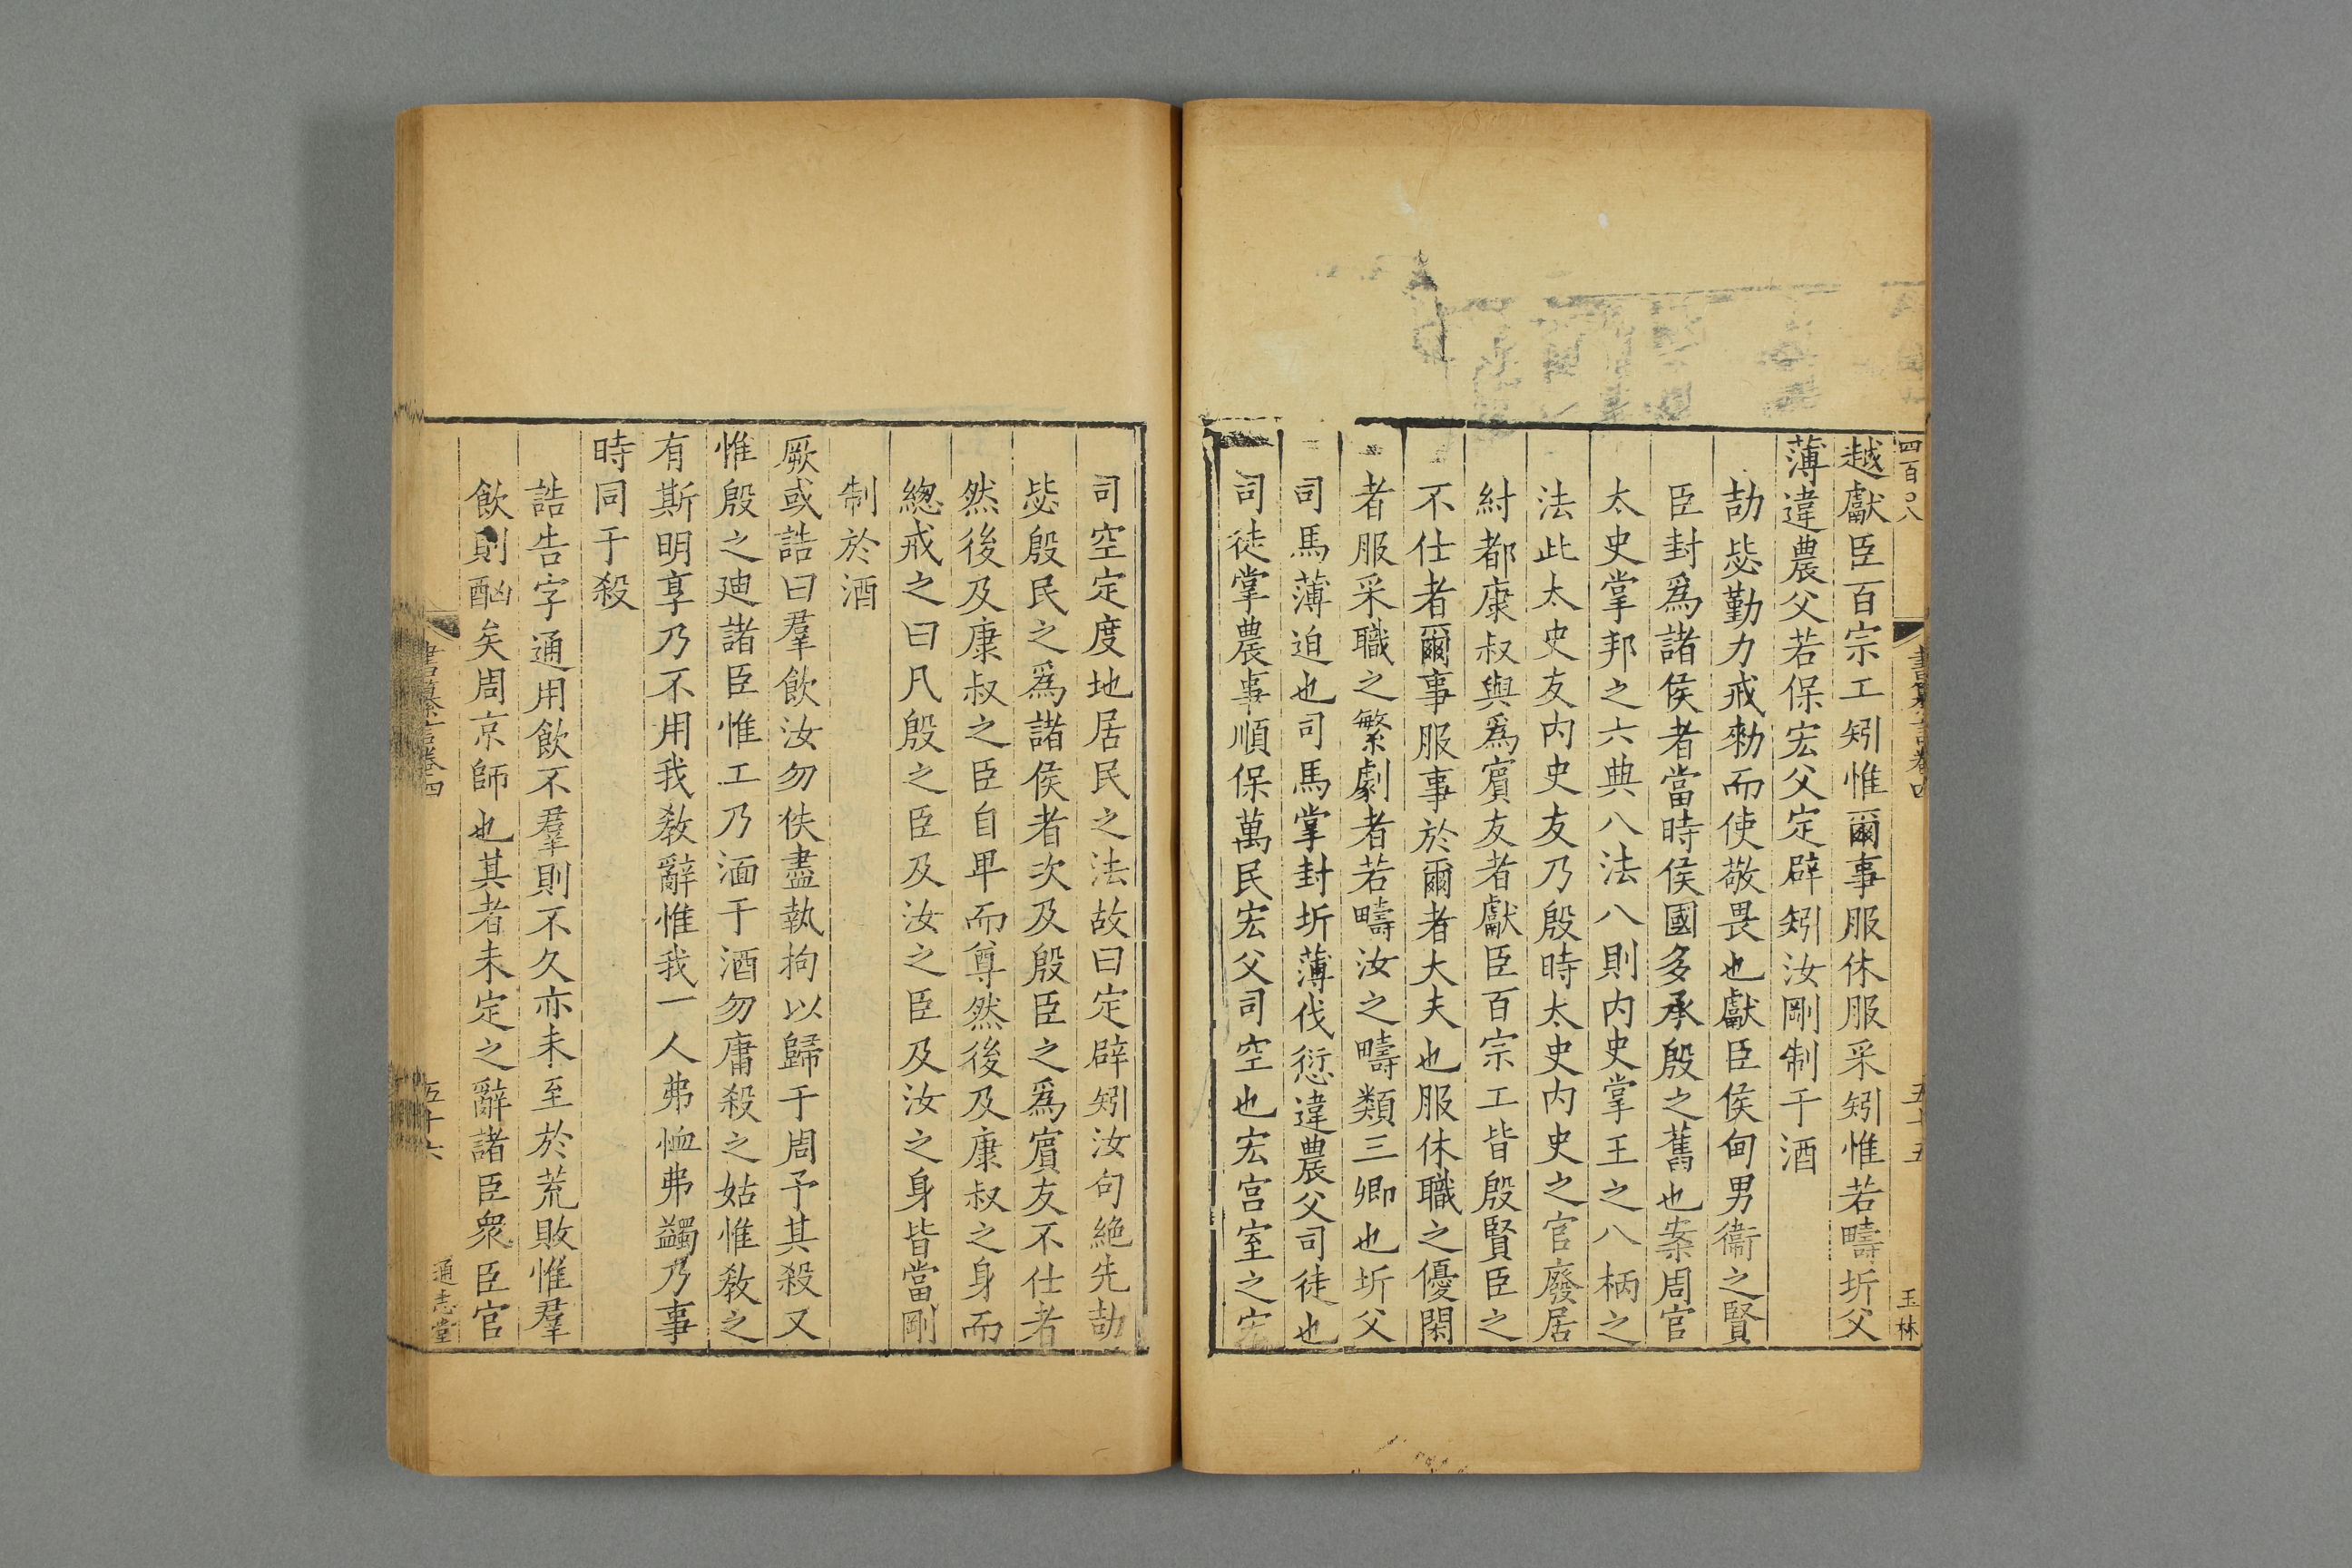 四百○八
書纂言卷四
五十五
玉林
越獻臣百宗工矧惟爾事服休服采矧惟若疇圻父
薄違農父若保宏父定辟矧汝剛制于酒
劼毖勤力戒勑而使敬畏也獻臣侯甸男衞之賢
臣封爲諸侯者當時侯國多承殷之舊也案周官
太史掌邦之六典八法八則内史掌王之八柄之
法此太史友内史友乃殷時太史内史之官廢居
紂都康叔與爲賔友者獻臣百宗工皆殷賢臣之
不仕者爾事服事於爾者大夫也服休職之優閑
者服采職之繁劇者若疇汝之疇類三卿也圻父
司馬薄迫也司馬掌封圻薄伐愆違農父司徒也
司徒掌農事順保萬民宏父司空也宏宫室之宏
司空定度地居民之法故曰定辟矧汝句絶先劼
毖殷民之爲諸侯者次及殷臣之爲賔友不仕者
然後及康叔之臣自卑而尊然後及康叔之身而
緫戒之曰凡殷之臣及汝之臣及汝之身皆當剛
制於酒
厥或誥曰羣飲汝勿佚盡執拘以歸于周予其殺又
惟殷之廸諸臣惟工乃湎于酒勿庸殺之姑惟敎之
有斯明享乃不用我敎辭惟我一人弗恤弗蠲乃事
時同于殺
誥告字通用飲不羣則不久亦未至於荒敗惟羣
飲則酗矣周京師也其者未定之辭諸臣衆臣官
書纂言卷四
五十六
通志堂